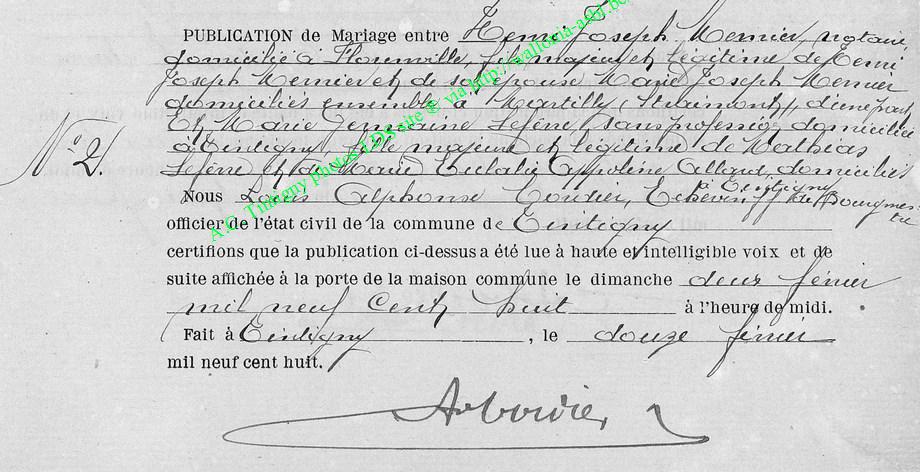 PUBLICATION de Mariage entre Henri Joseph Mernier, notaire
domicilié à Florenville, fils majeur et légitime de Henri
Joseph Mernier et de son épouse Marie Joseph Mernier
domiciliés ensemble à Martilly, Straimont, d'une part
Et Marie Germaine Lefèvre, sans profession domiciliée
N° 2.
à Tintigny, fille majeure et légitime de Mathias
Lefèvre et de Marie Eulalie Appoline Allard, domiciliés
à Tintigny
Nous Louis Alphonse Echevin ff de Bourgmestre
officier de l'état civil de la commune de Tintigny
certifions que la publication ci-dessus a été lue à haute et intelligible voix et de
suite affichée à la porte de la maison commune le dimanche deux février
mil neuf cent huit à l'heure de midi.
Fait à Tintigny, le douze février
mil neuf cent huit.
A.C. Tintigny photos LDS site @ via http://wallonia-asbl.be